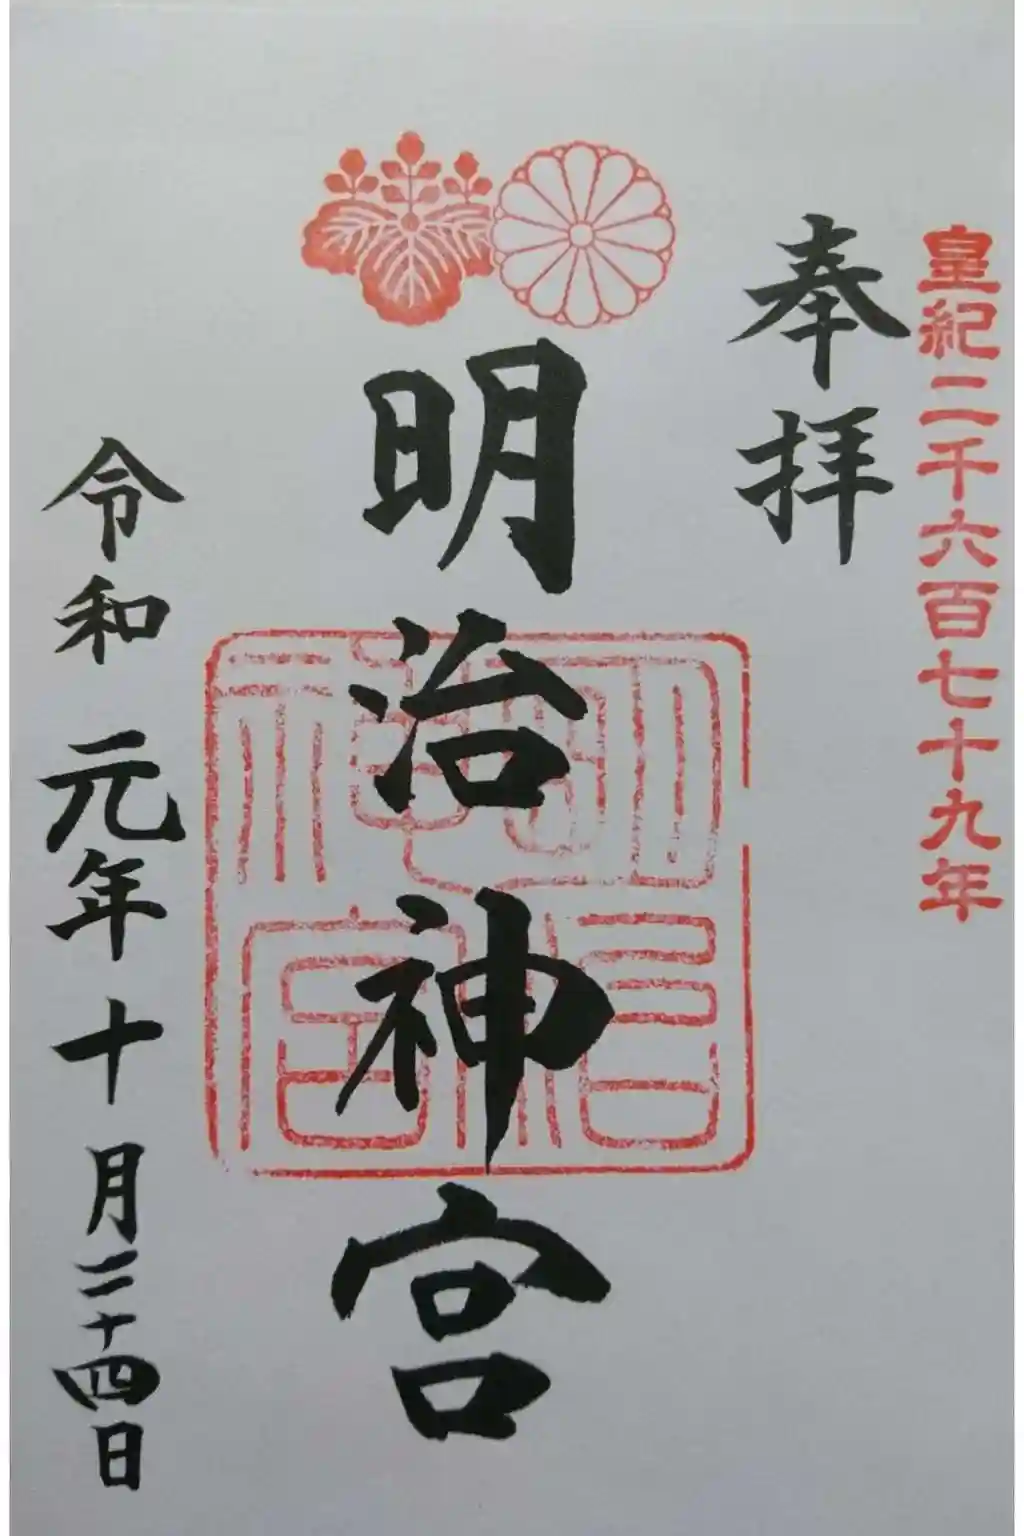 皇紀二千六百七十九年
奉拝
明治神宮
令和元年十月二十四日